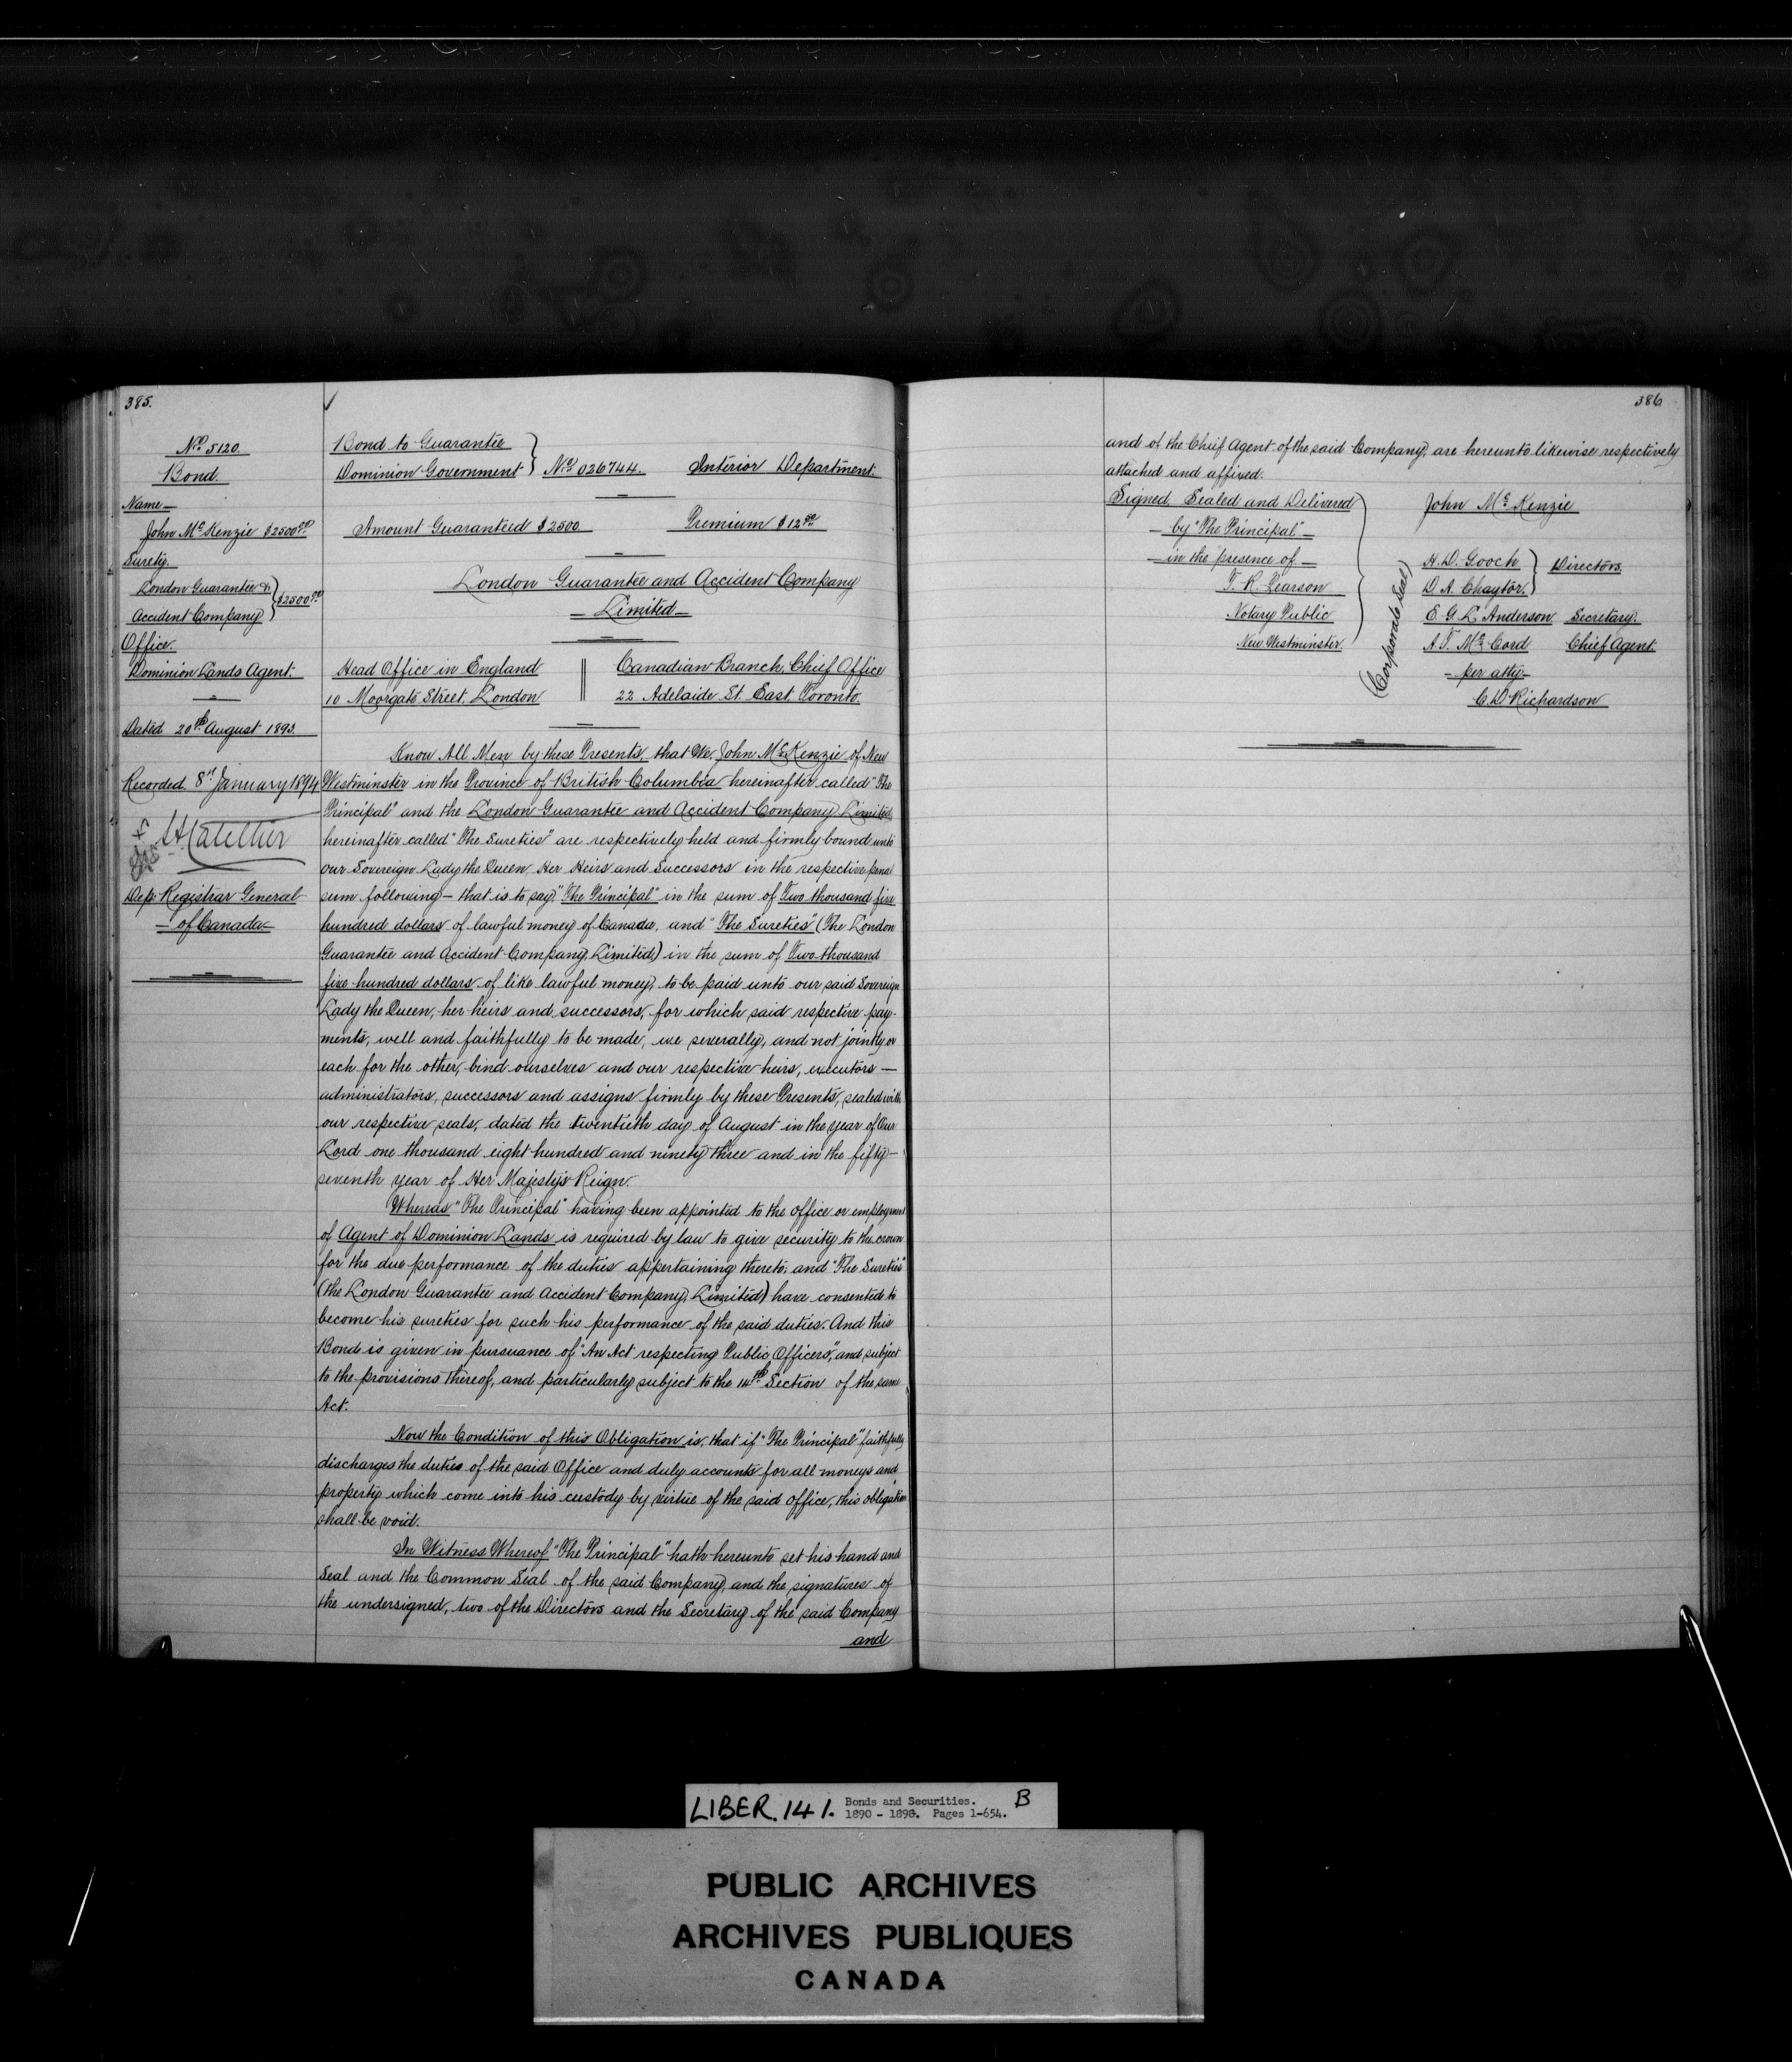 385.
Nº 5120.
Bond.
Name
John McKenzie $2500.00
Surety.
London Guarantee &
Accident Company } $2500.00
Office.
Dominion Lands Agent.
Dated 20th August 1893.
Recorded. 8th January 1894
Dep. Registrar General
of Canada
Bond to Guarantee
Dominion Government } No. 026744. Interior Department.
Amount Guaranteed $2500 Premium $12.50
London Guarantee and Accident Company
Limited
Head Office in England
10 Moorgate Street, London
Canadian Branch, Chief Office
22 Adelaide St. East, Toronto.
Know All Men by these Presents, that We, John McKenzie of New
Westminster in the Province of British Columbia hereinafter called "The
Principal" and the London Guarantee and Accident Company Limited,
hereinafter called "The Sureties" are respectively held and firmly bound unto
our Sovereign Lady the Queen, Her Heirs and Successors in the respective penal
sum following – that is to say, "The Principal" in the sum of Two thousand five
hundred dollars of lawful money of Canada, and "The Sureties" (The London
Guarantee and Accident Company, Limited) in the sum of Two thousand
five hundred dollars of like lawful money, to be paid unto our said Sovereign
Lady the Queen, her heirs and successors, for which said respective pay-
ments, well and faithfully to be made, we severally, and not jointly or
each for the other, bind ourselves and our respective heirs, executors —
administrators, successors and assigns firmly by these Presents, sealed with
our respective seals, dated the twentieth day of August in the year of Our
Lord one thousand eight hundred and ninety three and in the fifty-
seventh year of Her Majesty's Reign.
Whereas "The Principal" having been appointed to the office or employment
of Agent of Dominion Lands is required by law to give security to the crown
for the due performance of the duties appertaining thereto; and "The Sureties"
(the London Guarantee and Accident Company, Limited) have consented to
become his sureties for such his performance of the said duties. And this
Bond is given in pursuance of "An Act respecting Public Officers," and subject
to the provisions thereof, and particularly subject to the 14th Section of the same
Act.
Now the Condition of this Obligation is, that if "The Principal" faithfully
discharges the duties of the said Office and duly accounts for all moneys and
property which come into his custody by virtue of the said office, this obligation
shall be void.
In Witness Whereof "The Principal" hath hereunto set his hand and
Seal and the Common Seal of the said Company, and the signatures of
the undersigned, two of the Directors and the Secretary of the said Company
and
386
and of the Chief Agent of the said Company, are hereunto likewise respectively
attached and affixed.
Signed, Sealed and Delivered
by "The Principal"
in the presence of
T. R. Pearson
Notary Public
New Westminster
John McKenzie
(Corporate Seal)
H. D. Gooch
D. A. Chaytor. } Directors.
E. G. L. Anderson Secretary.
A. T. McCord Chief Agent.
per atty
C. D. Richardson
LIBER. 141. Bonds and Securities. B
1890 - 1898. Pages 1-654.
PUBLIC ARCHIVES
ARCHIVES PUBLIQUES
CANADA